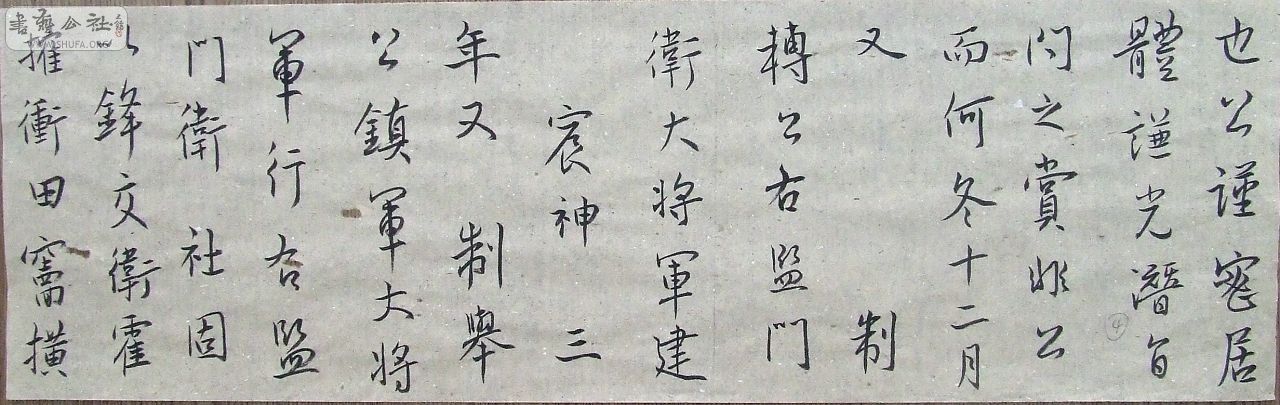 也公謹密居
體謙光潛自
問之賞非公
而何冬十二月
又制
轉公右監門
衛大將軍建
宸神三
年又制舉
公鎮軍大將
軍行右監
門衛社固
以鋒交衛霍
摧衝田竇橫
④
書法公社
WWW.SHUFA.ORG